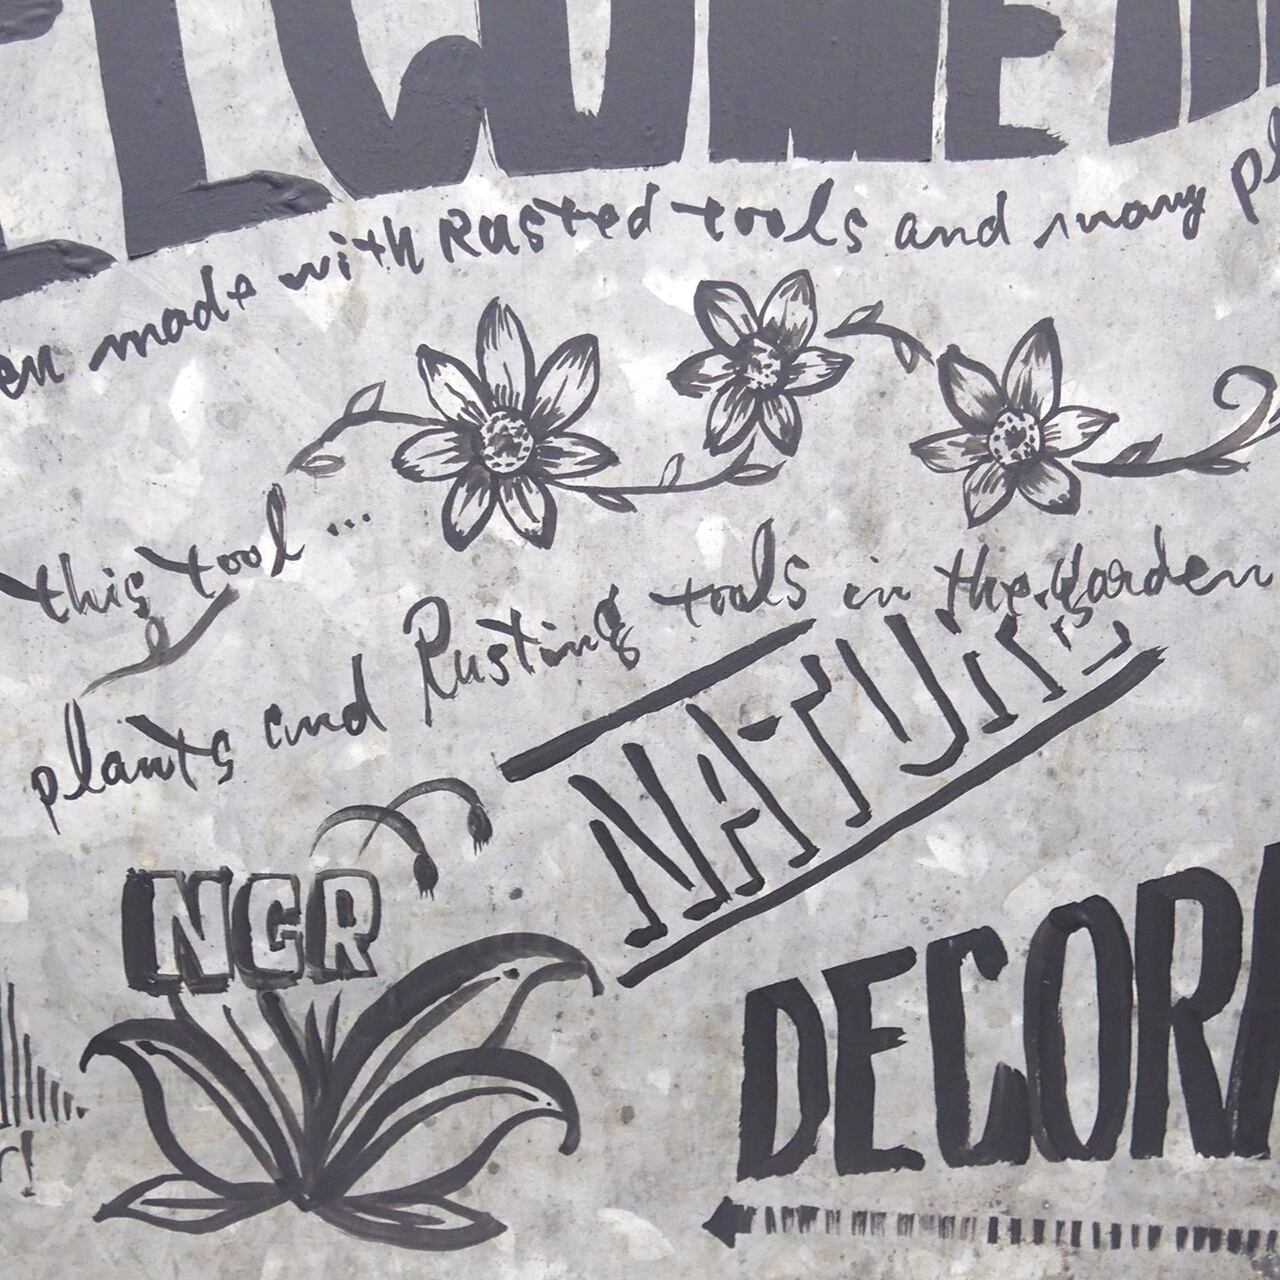 ELCOME
en made with Rusted tools and many pl
this tool ...
plants and Rusting tools in the garden
NATURE
NGR
DECORA